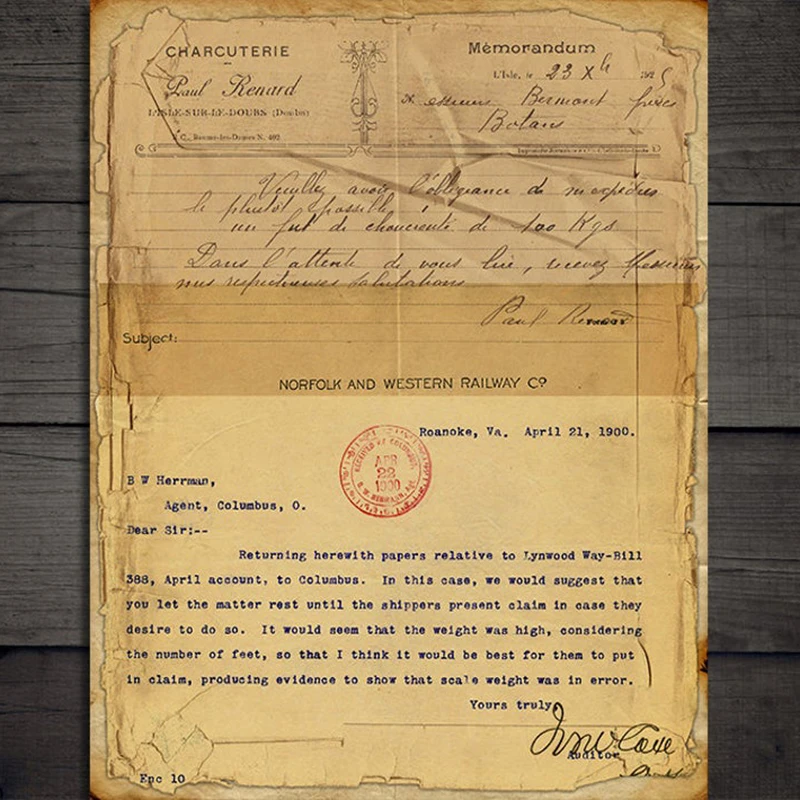 CHARCUTERIE
Paul Renard
L'ISLE-SUR-LE-DOUBS (Doubs)
R. C. Baume-les-Dames N. 402
Mémorandum
L'Isle, le 23 Xh 192
Bermont frères
Botans
Veuillez avoir l'obligeance de m'expédier
le plutôt possible
un fut de choucroute de 100 Kgs
Dans l'attente de vous lire, recevez Messieurs
mes respectueuses salutations
Paul Renard
Subject:
NORFOLK AND WESTERN RAILWAY Cº
Roanoke, Va. April 21, 1900.
RECEIVED AT COLUMBUS
APR
22
1900
B W Herrman,
Agent, Columbus, O.
Dear Sir:--
Returning herewith papers relative to Lynwood Way-Bill
388, April account, to Columbus. In this case, we would suggest that
you let the matter rest until the shippers present claim in case they
desire to do so. It would seem that the weight was high, considering
the number of feet, so that I think it would be best for them to put
in claim, producing evidence to show that scale weight was in error.
Yours truly,
Auditor
Enc 10